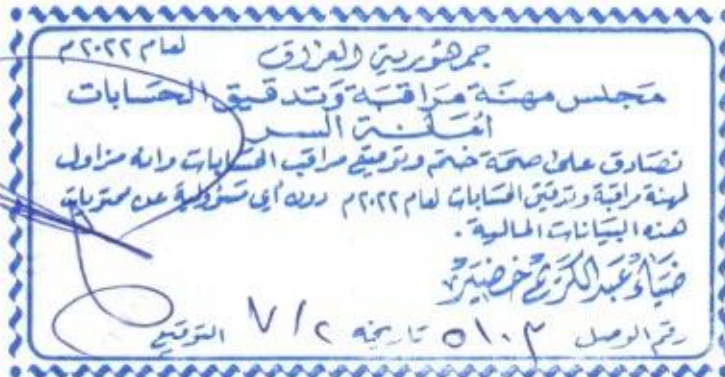 جمهورية العراق لعام ٢٠٢٢م
مجلس مهنة مراقبة وتدقيق الحسابات
أمانة السر
نصادق على صحة ختم وتوقيع مراقب الحسابات وانه مزاول
لمهنة مراقبة وتدقيق الحسابات لعام ٢٠٢٢م دون أي مسؤولية عن محتويات
هذه البيانات المالية.
ضياء عبد الكريم خضير
رقم الوصل ٥١٠٣ تاريخه ٧/٢ التوقيع